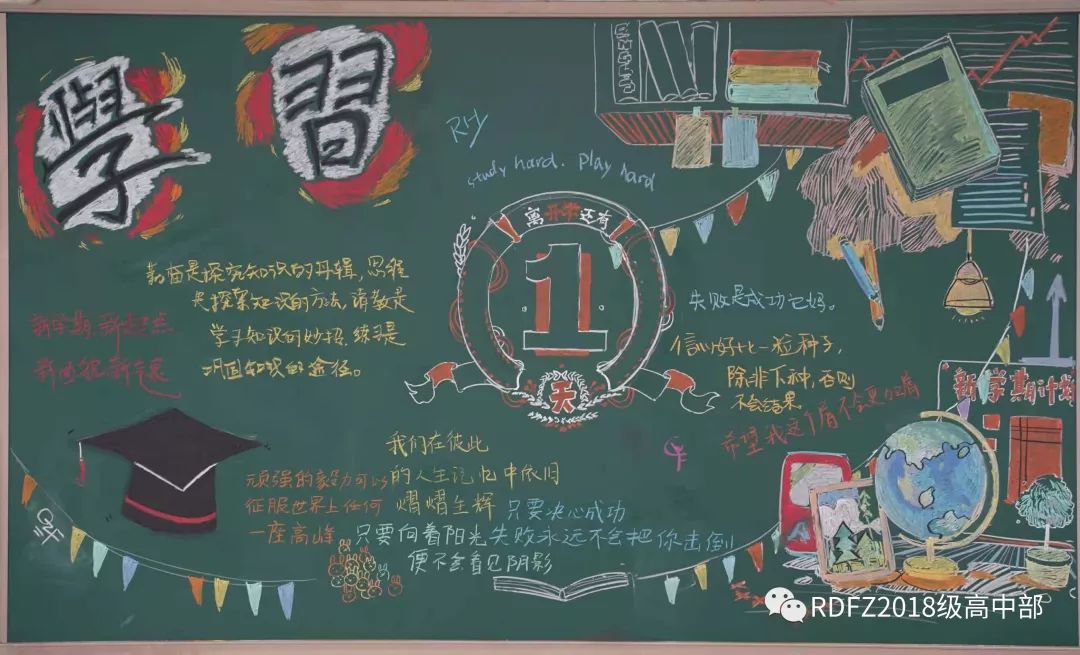 學習
RH
study hard. play hard
离开学还有
1
天
ENGLISH
勤奋是探究知识的舟辑,思绎
是探索知识的方法,请教是
学习知识的妙招,练习是
巩固知识的途径。
新学期,新起点
新
失败是成功之妈。
信心好比一粒种子,
除非下种,否则
不会结果
希望我这个月不会更
新学期计划
我们在彼此
的人生记忆中依旧
熠熠生辉
顽强的毅力可以
征服世界上任何
一座高峰
只要决心成功
失败永远不会把你击倒
只要向着阳光
便不会看见阴影
RDFZ2018级高中部